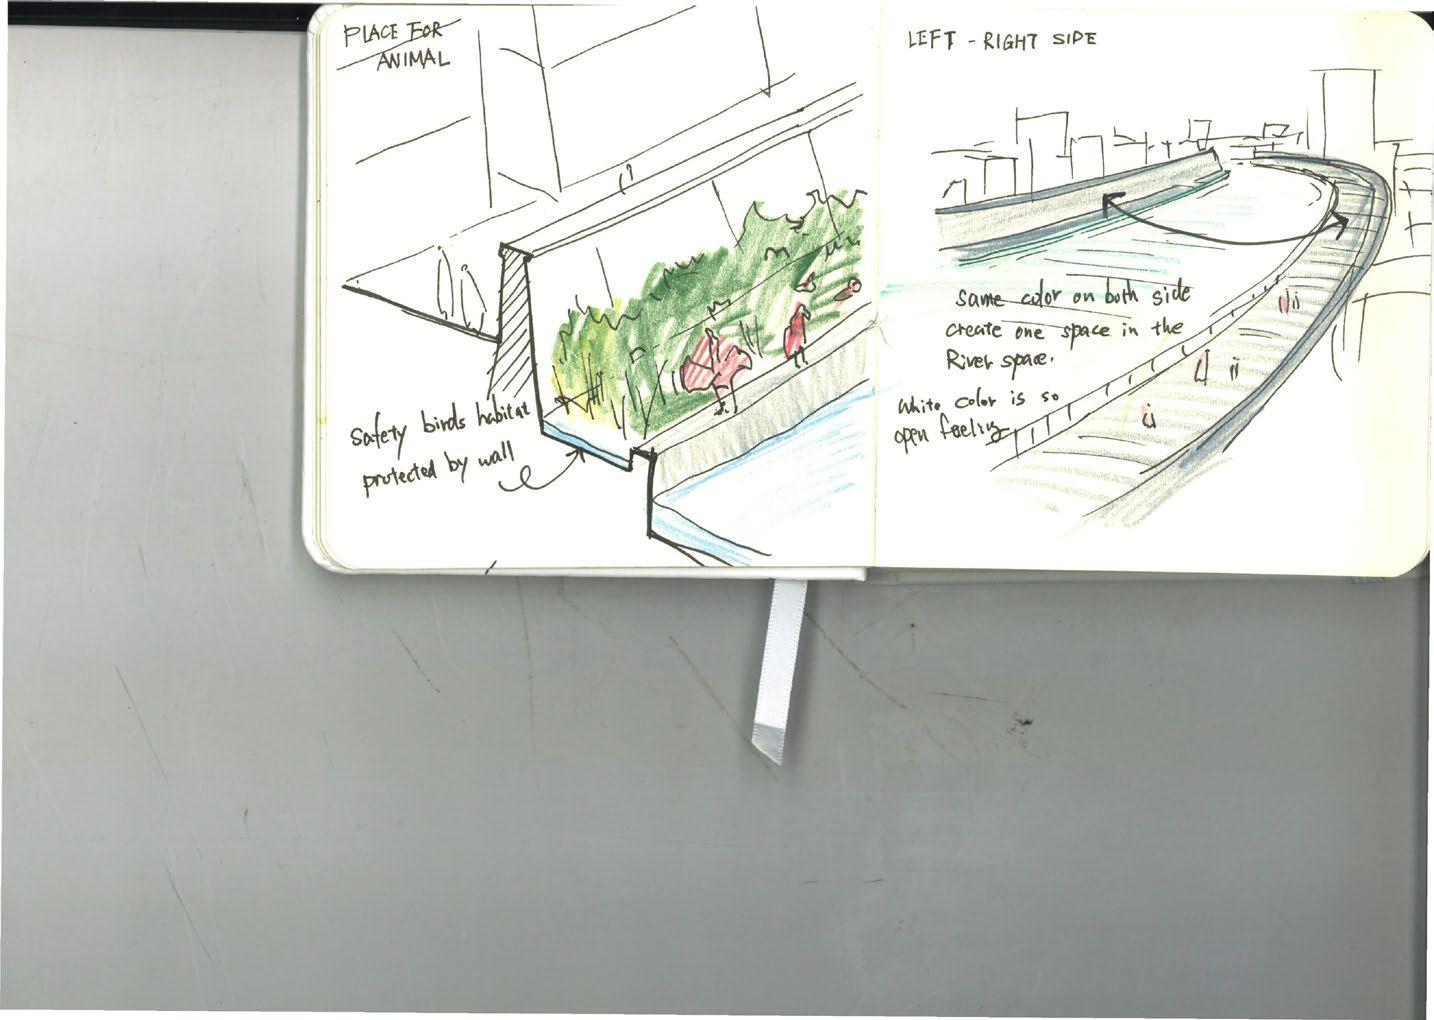 PLACE FOR
ANIMAL
Safety birds habitat
protected by wall
LEFT - RIGHT SIDE
Same color on both side
create one space in the
River space.
White color is so
open feeling